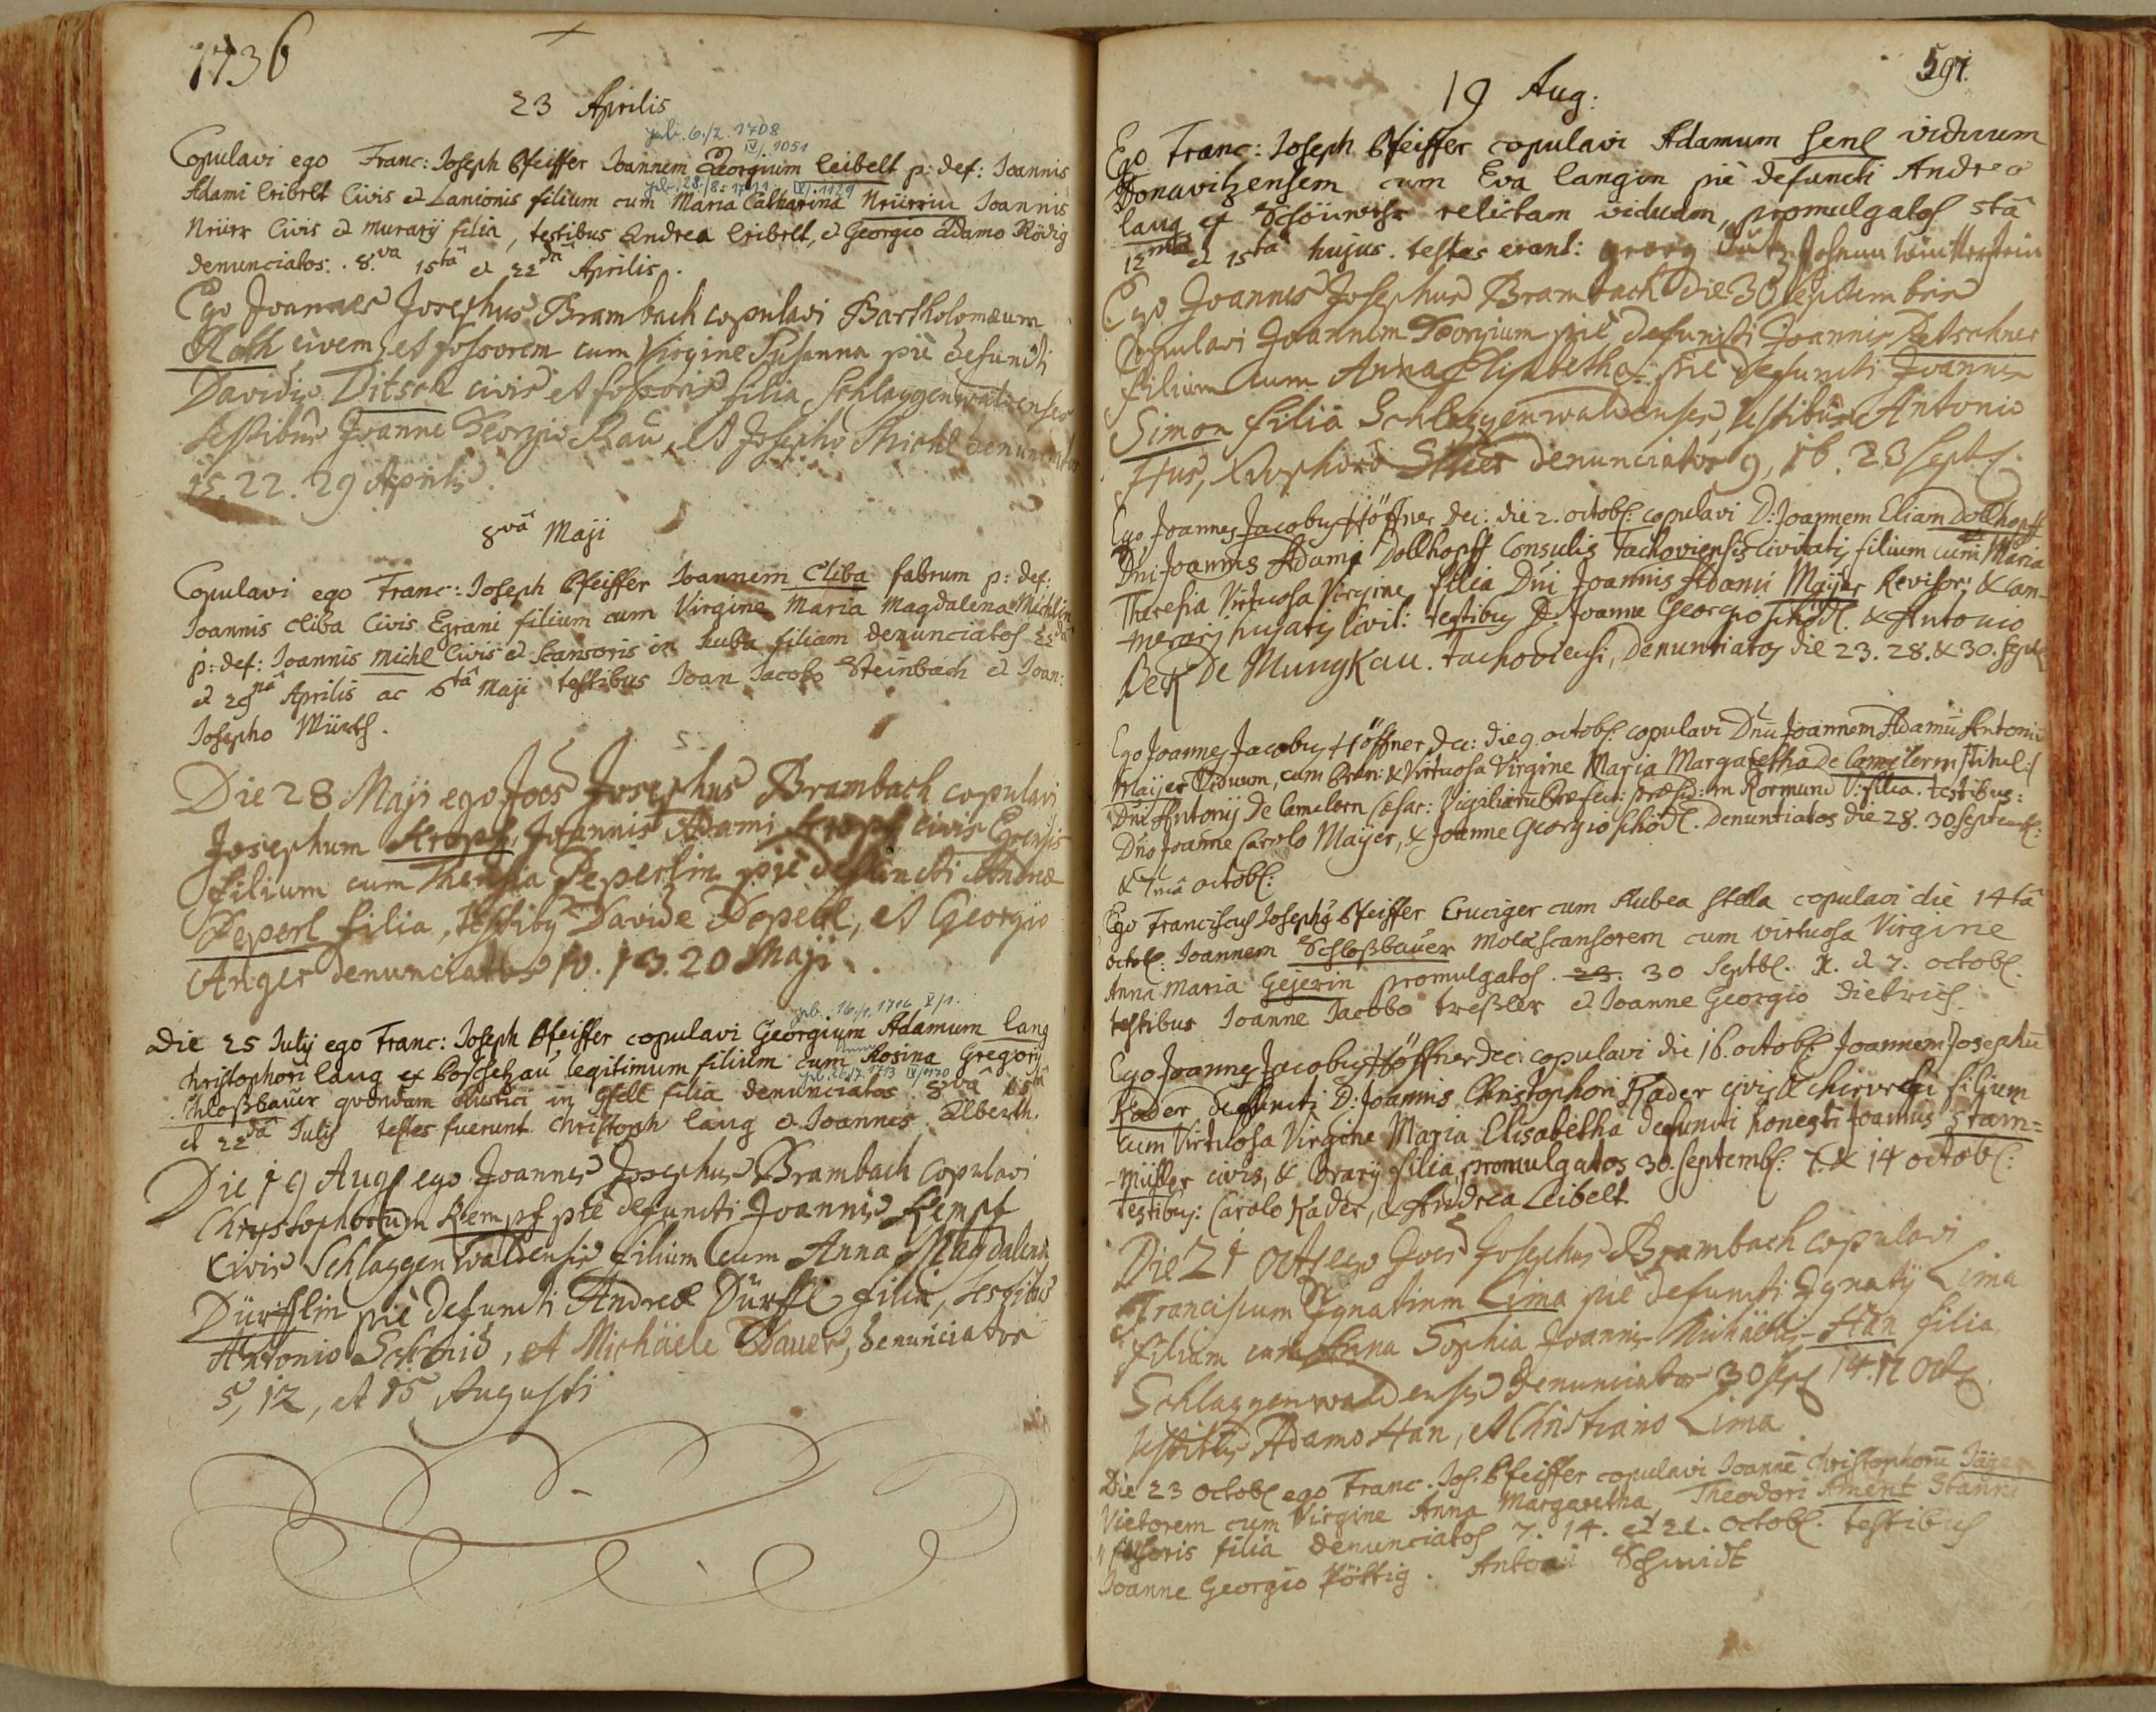 1736
23 Aprilis
geb. 6./2. 1708
IV/. 1051
Copulavi ego Franc: Joseph Pfeiffer Joannem Georgium Leibelt p: def: Joannis
geb. 28./8. 1711 IV. 1129
Adami Leibelt Civis et Lanionis filium cum Maria Catharina Joannis
Civis et murarij filia, testibus Andrea Leibelt, et Georgio Adamo Rödig
denunciatos. 8.va 15tâ et 22da Aprilis.
Ego Joannes Josephus Brambach copulavi Bartholomæum
Roth civem et fossorem cum Virgine Susanna piè defuncti
Davidis Ditscel civis et fossoris filia, Schlaggenwaldenses
testibus Joanne Georgio Rau, et Josepho Michl denunciatos
15. 22. 29 Aprilis.
8vâ Maji
Copulavi ego Franc: Joseph Pfeiffer Joannem Cliba fabrum p: def:
Joannis Cliba Civis Egrani filium cum Virgine Maria Magdalena Michlin
p: def: Joannis Michl Civis et scansoris in huba filiam denunciatos 22dâ
et 29nâ Aprilis ac 6tâ Maji testibus Joan Jacobo Steinbach et Joan:
Josepho Würth.
Die 28 Maji ego Joes Josephus Brambach copulavi
Josephum Kropf, Joannis Adami Kropf civis Egrensis
filium cum Theresia Peperlin piè defuncti Andreæ
Peperl filia, testibq Davide Peperl, et Georgio
Anger denunciatos 10. 13. 20 Maji.
geb. 16./1. 1716 V/1.
Die 25 Julij ego Franc: Joseph Pfeiffer copulavi Georgium Adamum Lang
Christophori Lang ex Poschetzau legitimum filium cum Rosina Gregorij
geb. 1713 IV/1170
Schloßbauer quondam Rustici in gfell filia denunciatos 8vâ 15tâ
et 22dâ Julij testes fuerunt Christoph Lang et Joannes Alberth.
Die 19 Augs ego Joannes Josephus Brambach copulavi
Chrystophorum Kempf piè defuncti Joannis Kempf
civis Schlaggenwaldensis filium cum Anna Magdalena
Dürfflin piè defuncti Andreæ Dürffl filia, testibus
Antonio Schmid, et Michäele Bauer, denunciatos
5, 12, et 15 Augusti
591.
19 Aug:
Ego Franc: Joseph Pfeiffer copulavi Adamum Senl viduum
Donawitzensem cum Eva Langin piè defuncti Andreæ
Lang ex relictam viduam, promulgatos 5tâ
12mâ et 15tâ hujus. testes erant: Georg
Ego Joannes Josephus Brambach die 30 septembris
Copulavi Joannem Georgium piè defuncti Joannis Letschner
filium cum Anna Elisabetha piè defuncti Joannis
Simon filia Schlaggenwaldenses, testibus Antonio
Hus, denunciatos 9, 16. 23 Septs.
Ego Joannes Jacobus Höffner Dec: die 2. octobs: copulavi D: Joannem Eliam Dollhopff
Dni Joannis Adami Dollhopff Consulis Tachoviensis Civitatis filium cum Maria
Theresia Virtuosa Virgine, filia Dni Joannis Adami Maijer Revisor: & Cam-
merarij hujatis Civit: testibus D: Joanne Georgio Schödl. & Antonio
Beck De Mungkau. Tachoviensi, Denuntiatos die 23. 28. & 30. septbs
Ego Joannes Jacobus Höffner Dec: die 9. octobs: copulavi Dnū Joannem Adamū Antoniū
Maijer Viduum, cum Præn: & Virtuosa Virgine Maria Margaretha De Camelern titul:
Dni Antonij De Camelern Cæsar: Vigiliarū Præfecti: præsid: in V: filia. testibus:
Dno Joanne Carolo Maijer, & Joanne Georgio Schödl. Denuntiatos die 28. 30 septembs:
& 7mâ octobs:
Ego Franciscus Josephq Pfeiffer Cruciger cum Rubea Stella copulavi die 14tâ
octobs: Joannem Schloßbauer molæ scansorem cum virtuosa Virgine
Anna Maria Gejerin promulgatos 30 septbs. et 7. octobs.
testibus Joanne Jacobo Treßler et Joanne Georgio Dietrich.
Ego Joannes Jacobus Höffner Dec: copulavi die 16. octobs: Joannem Josephū
Kader Defuncti D: Joannis Christophori Kader civis & chirurgi filium
cum Virtuosa Virgine Maria Elisabetha Defuncti honesti Joannis Stam-
-müller civis, & filia, promulgatos 30. septembs: 7. & 14 octobs:
testibus: Carolo Kader, & Andrea Leibelt
Die 21 Octs ego Joes Josephus Brambach copulavi
Franciscum Ignatium Lima piè defuncti Ignatij Lima
filium cum Anna Sophia Joannis Michäelis Han filia
Schlaggenwaldenses denunciatos 30 14. Octs.
testibus Adamo Han, et Christiano Lima
Die 23 octobs ego Franc. Jos. Pfeiffer copulavi Joannē Christophorū Jäger
Vietorem cum Virgine Anna Margaretha, Theodori Ament Stanni
fossoris filia denunciatos 7. 14. et 21. octobs. testibus
Joanne Georgio Pöttig. Antoni Schmidt